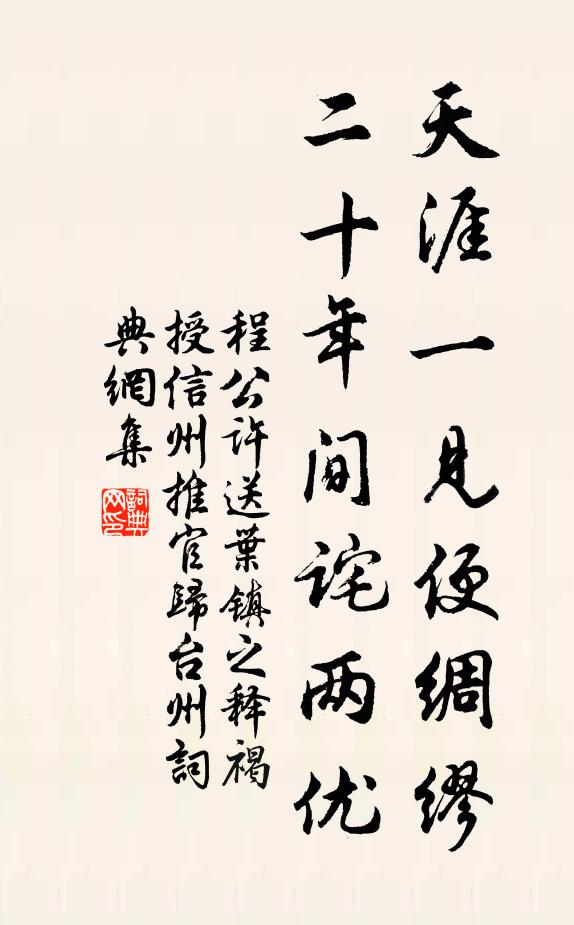 天涯一见便绸缪
二十年间诧两优
程公许送葉镇之释褐
授信州推官歸台州詞
典網集
詞典网印